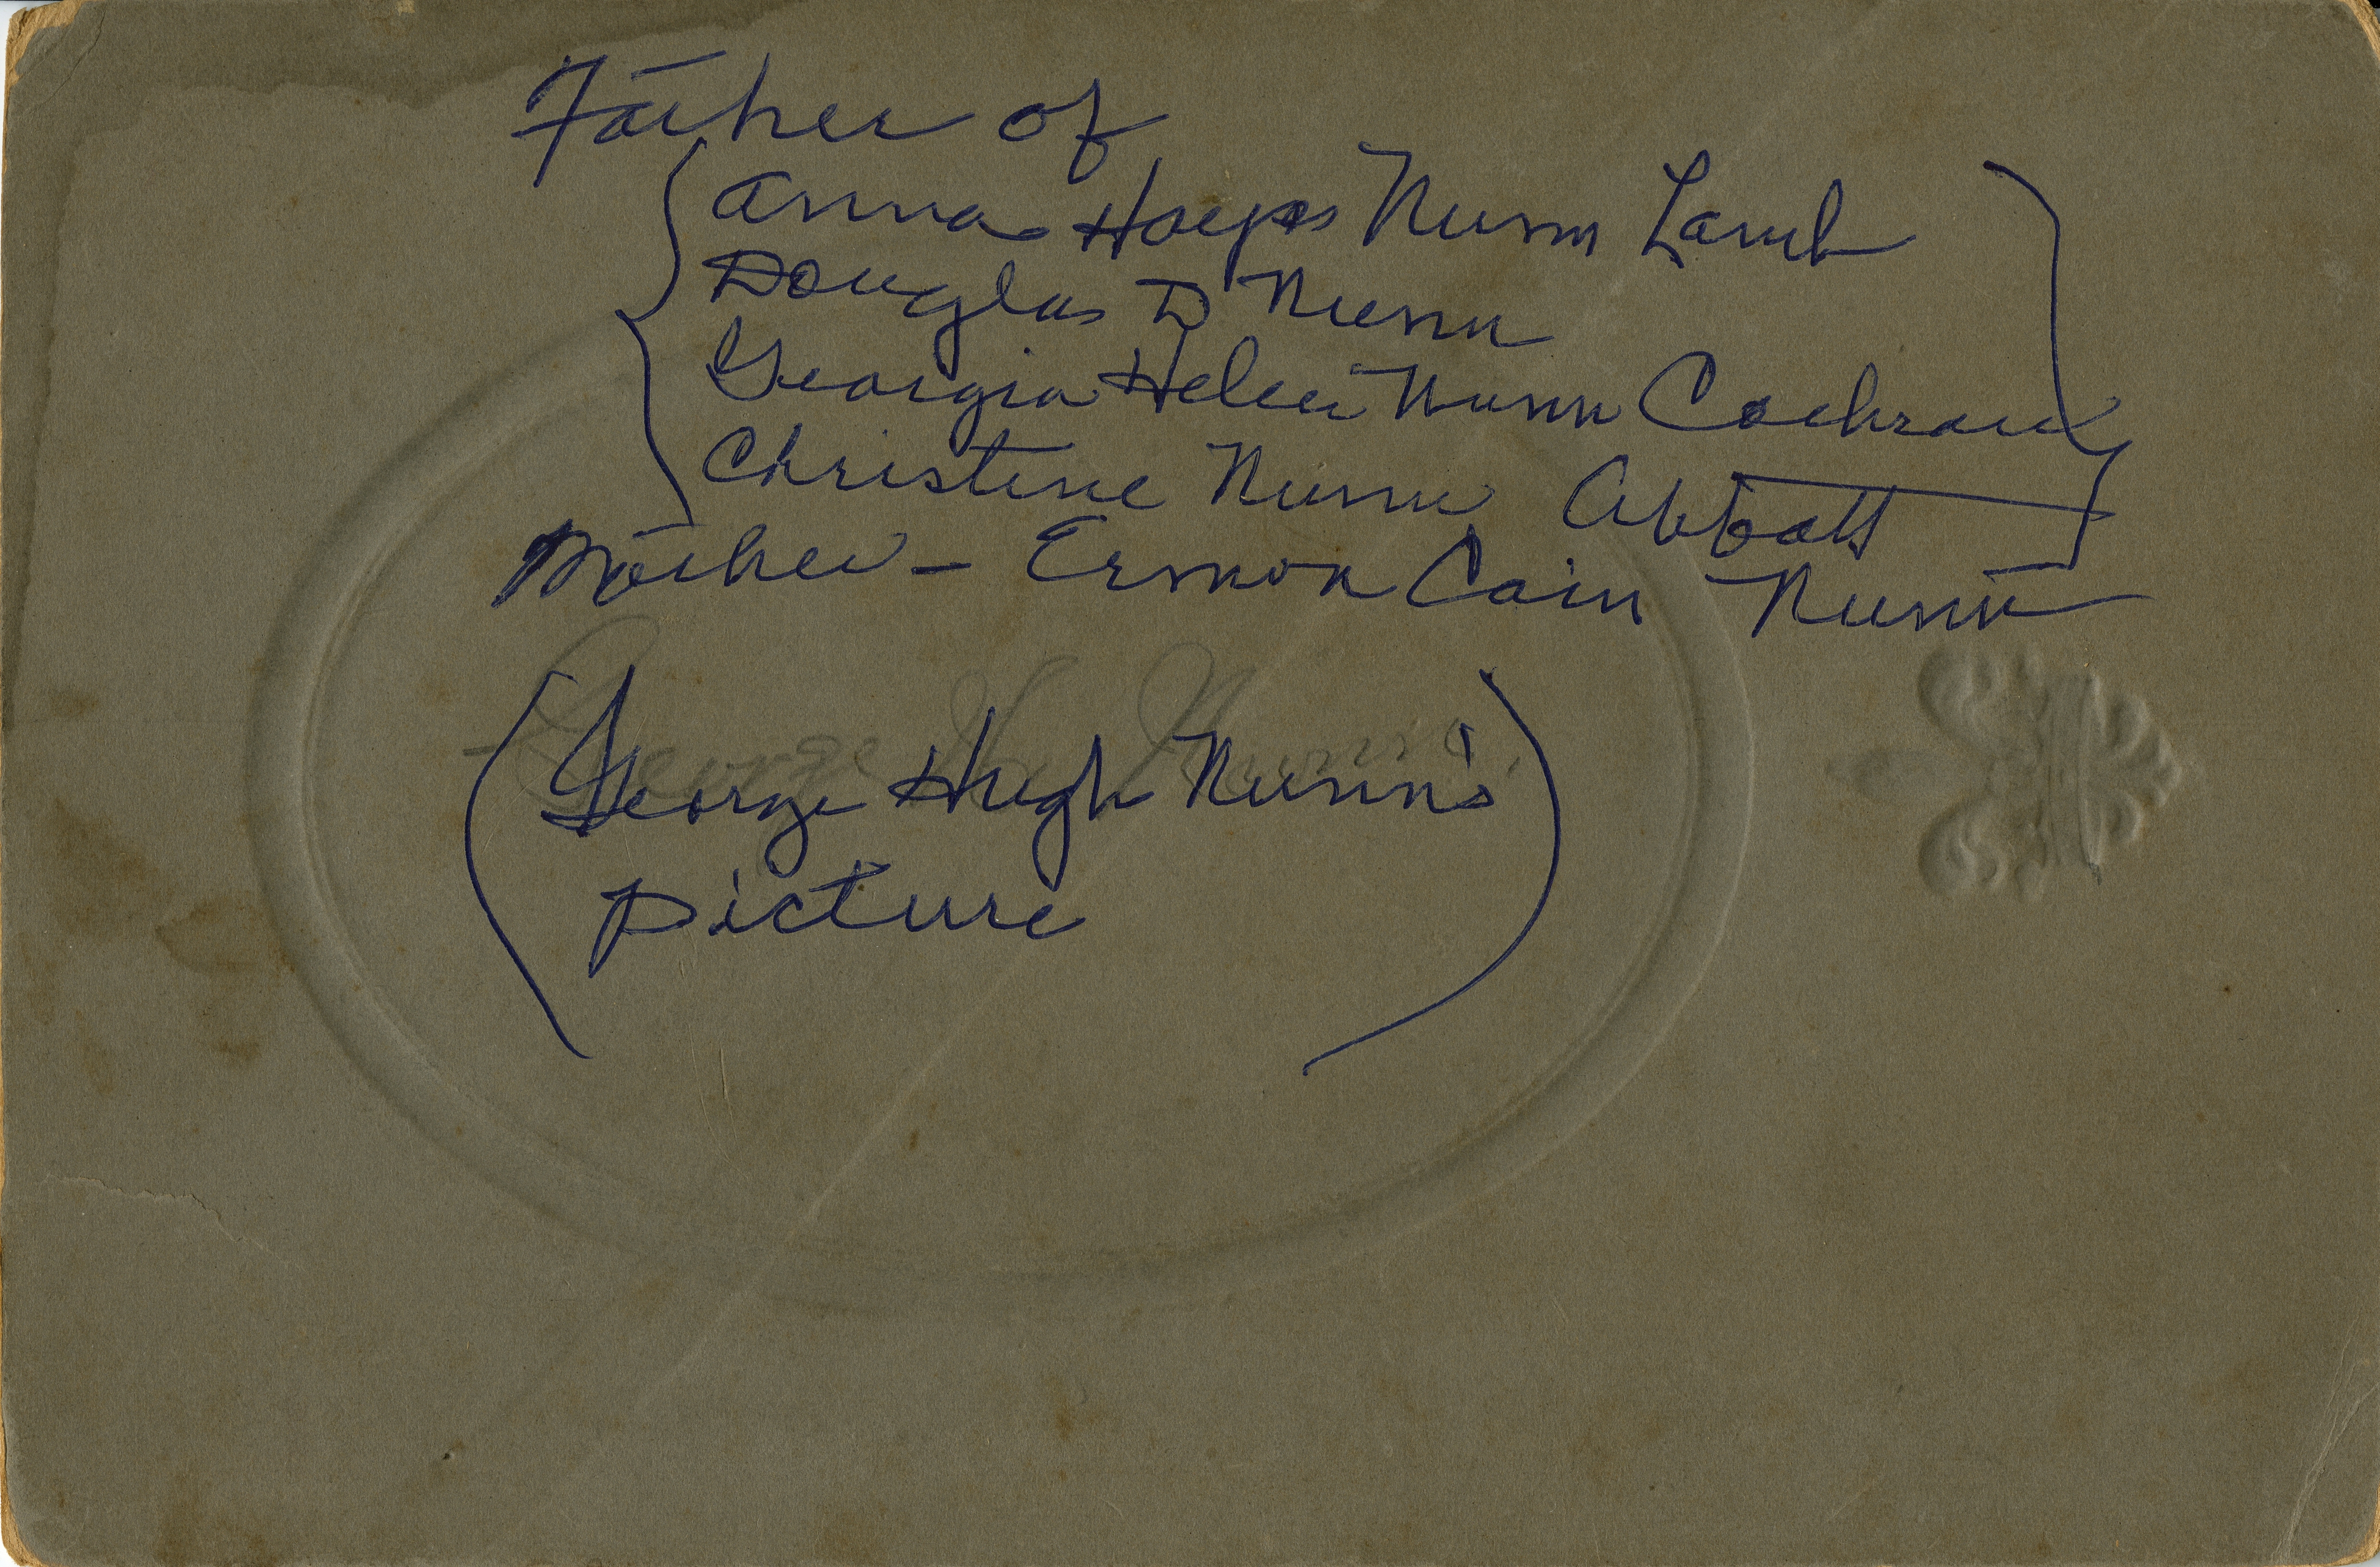 Father of
Anna Nunn Lamb
Douglas D Nunn
Georgia Helen Nunn Cochran
Christine Nunn Abbott
Mother - Ermon Cain Nunn
George H. Nunn
(George Hugh Nunn's
picture)